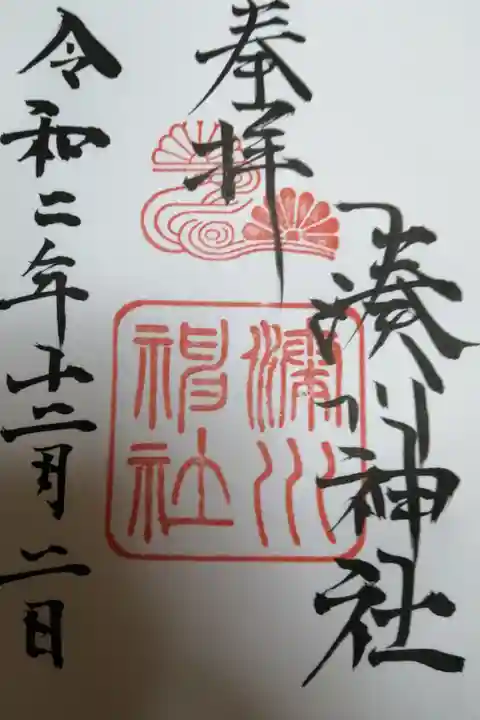 奉拝
湊川神社
湊川神社
令和二年十二月二日